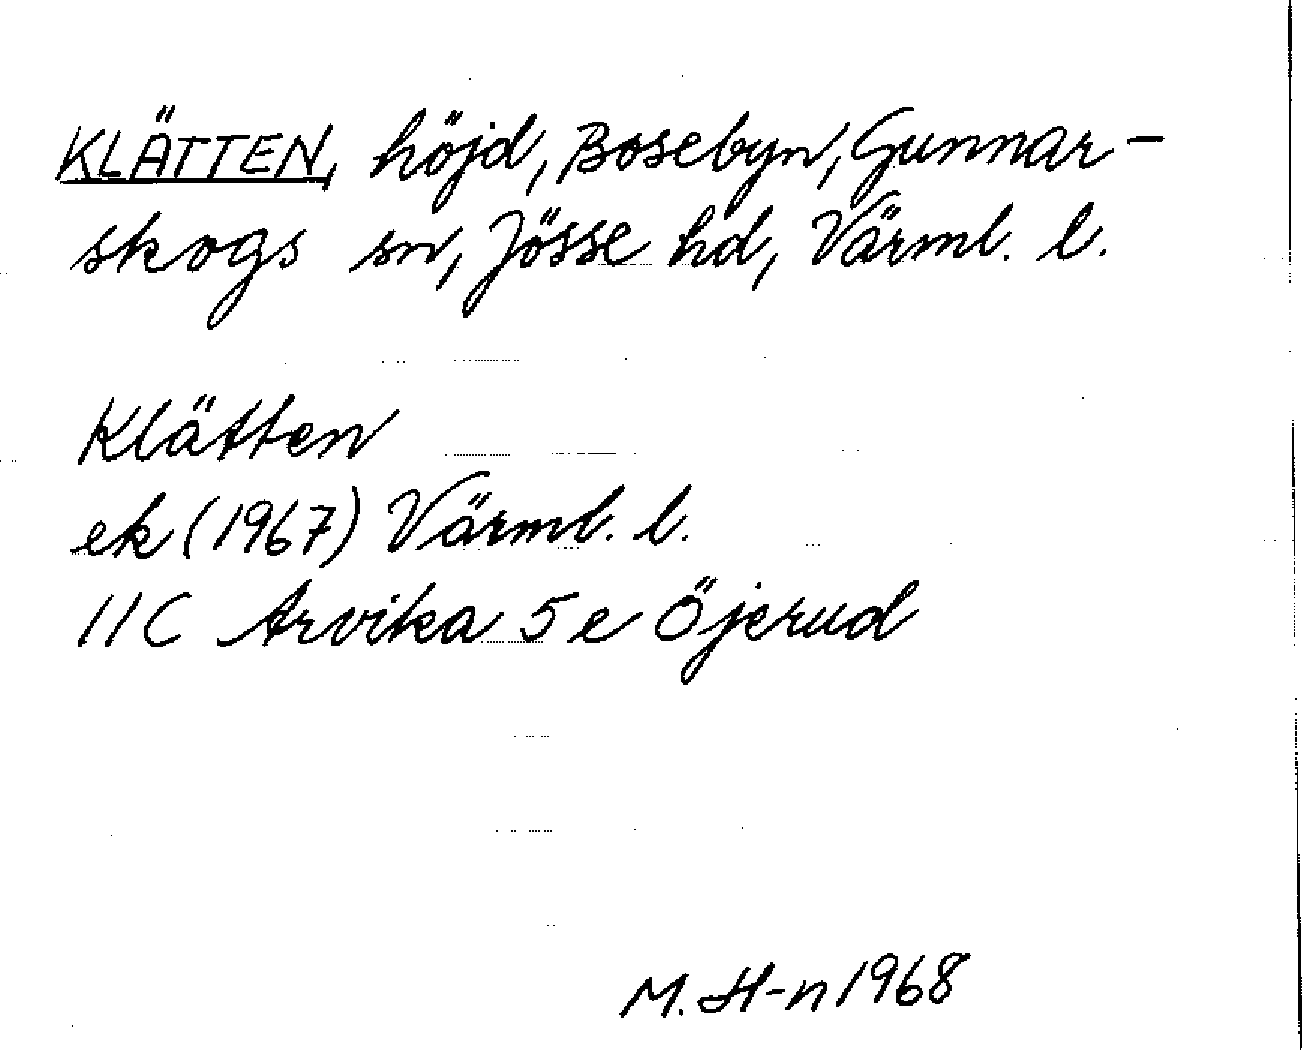 KLÄTTEN, höjd, Bosebyn, Gunnar-
skogs sn, Jösse hd, Värml. l.
Klätten
ek (1967) Värml. l.
11C Arvika 5e Öjerud
M. H-n 1968